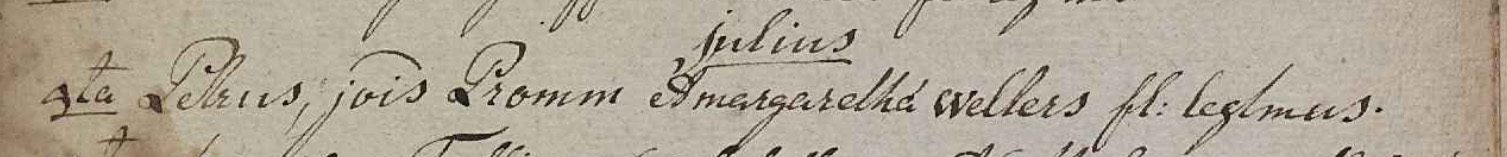 julius
9ta Petrus, jois Promm et margaretha wellers fl: legtmus.